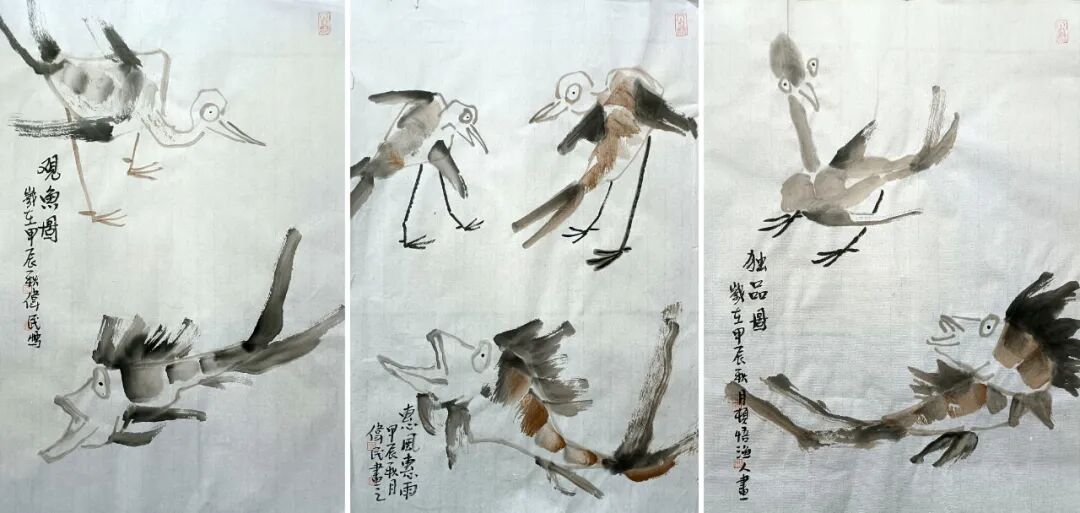 观鱼图
岁在甲辰秋伟民写
惠风惠雨
甲辰秋月
伟民画之
独品图
岁在甲辰秋月顿悟渔人画